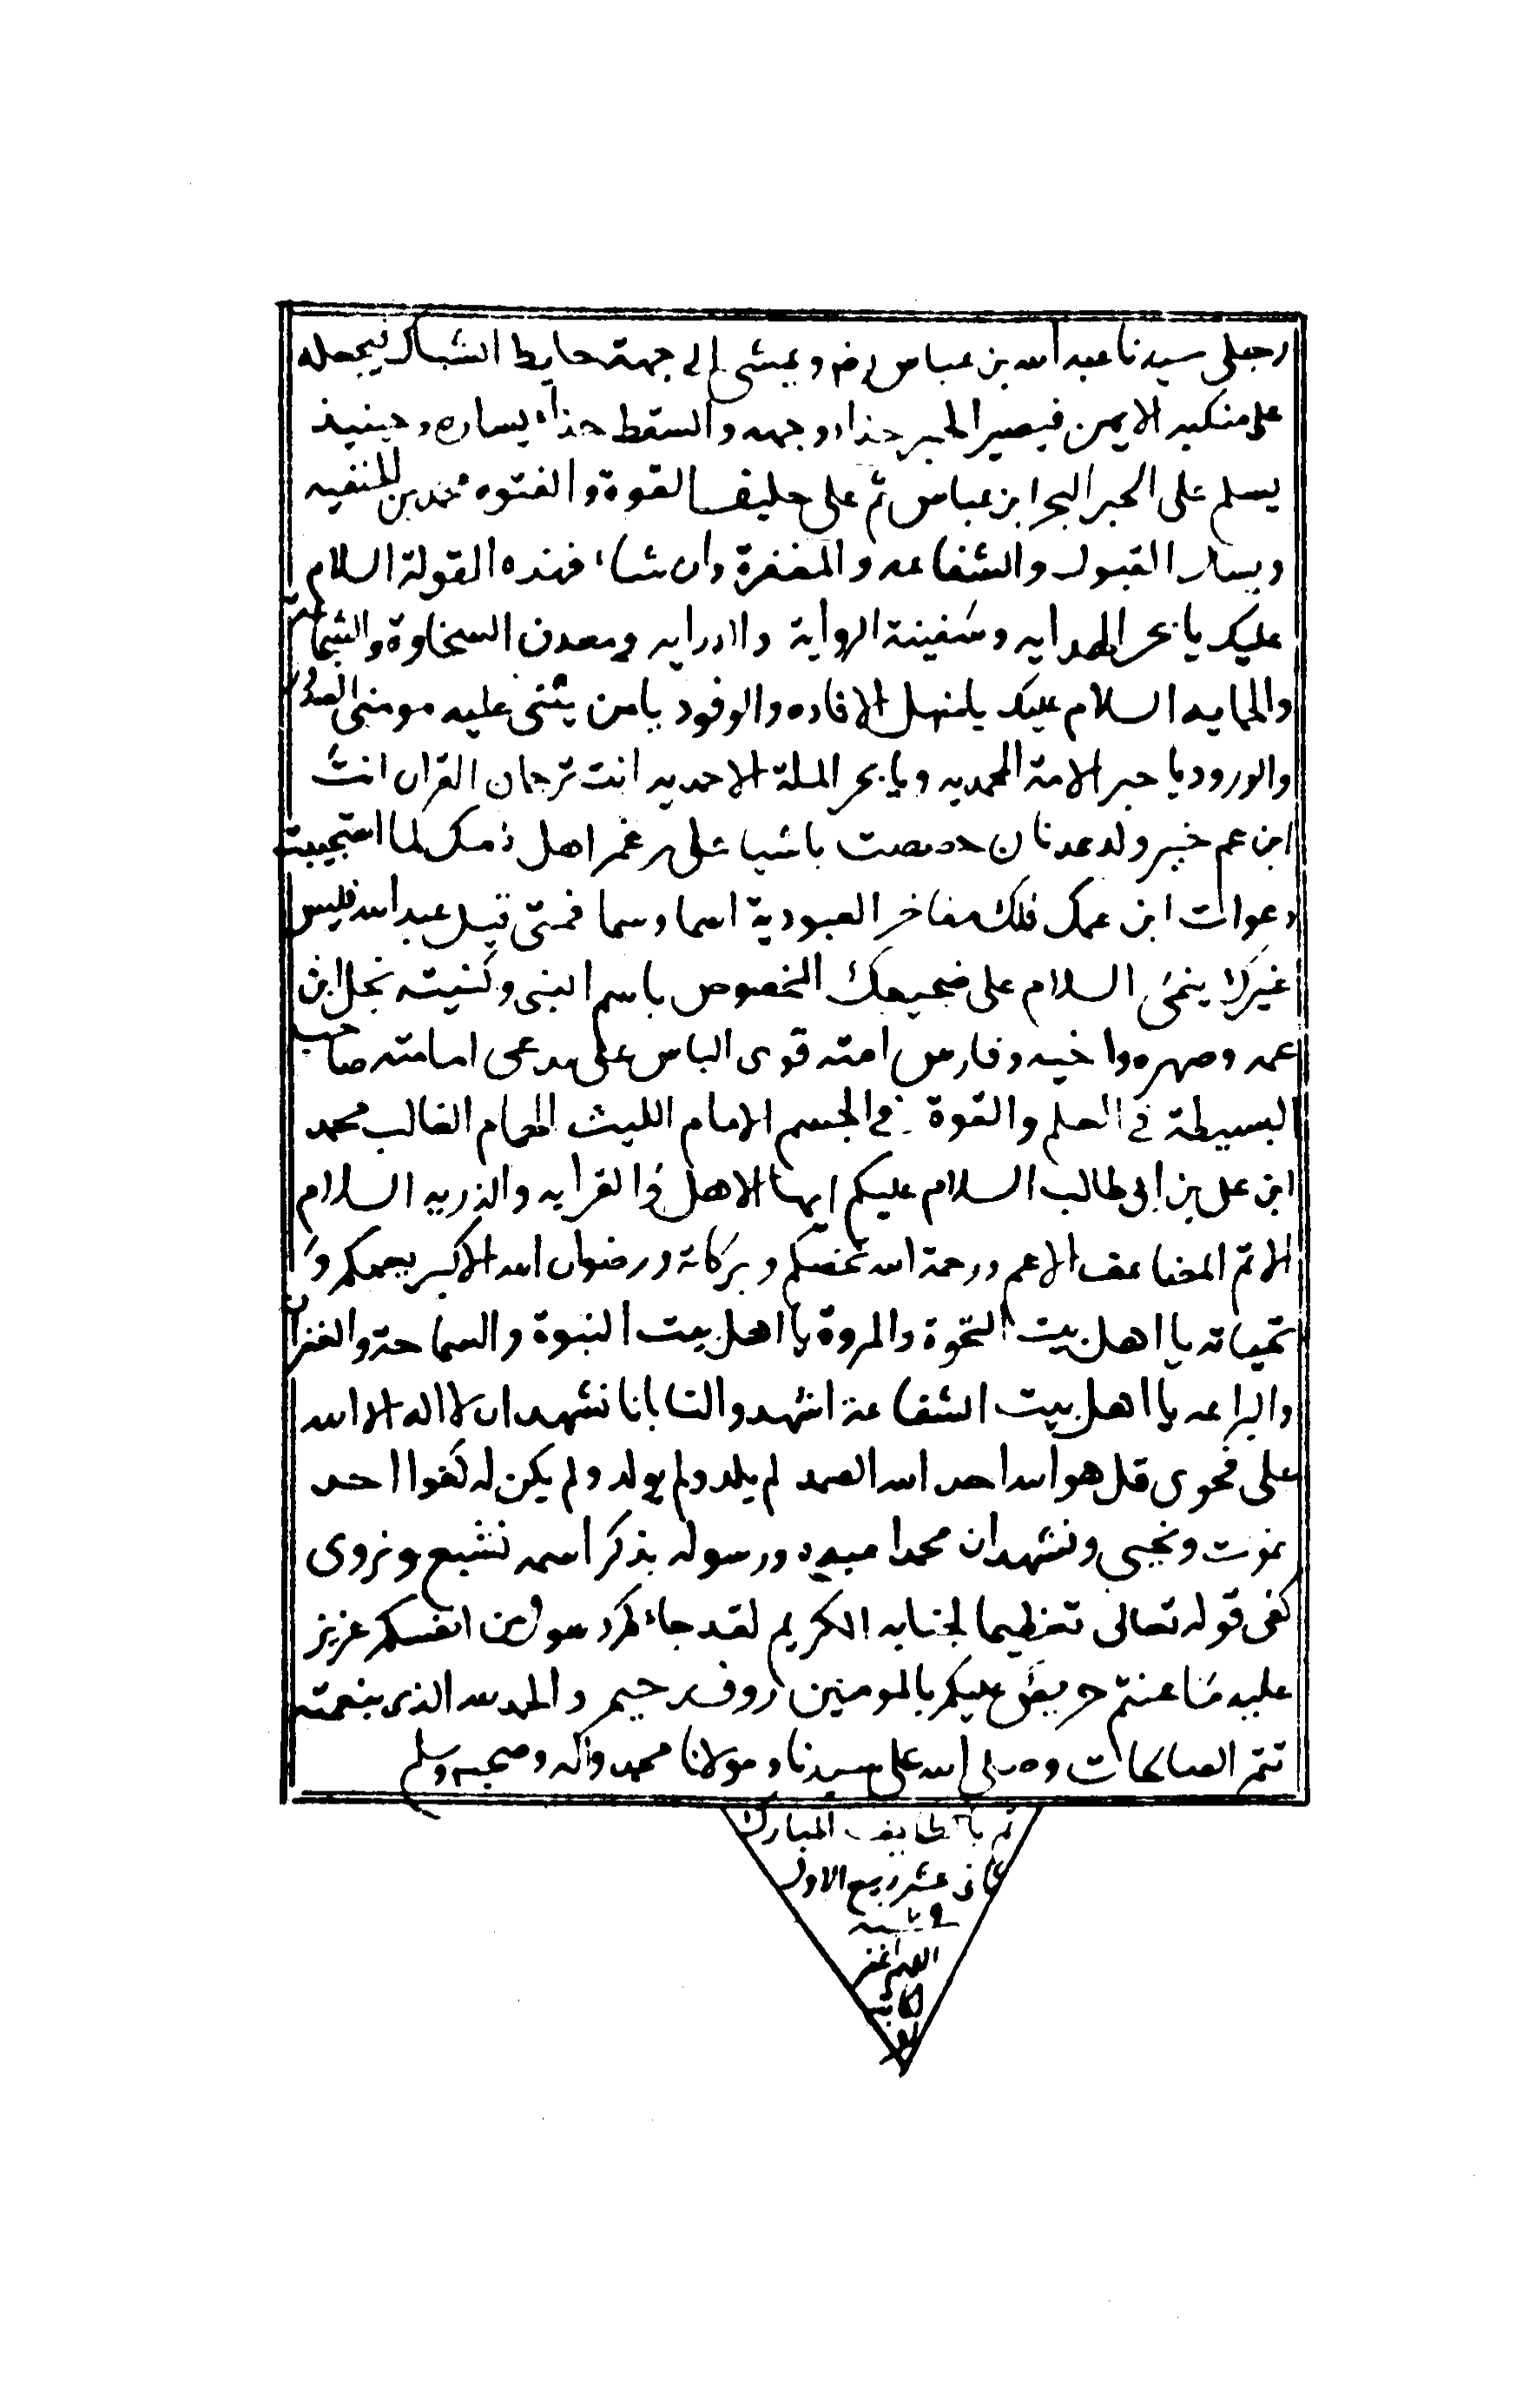 رجلى سيدنا عبد الله بن عباس رضه ويمشى الى جهة حايط الشباك فيجعله
على منكبه الايمن فيصير الحبر حذاء وجهه والسقط حذاء يساره وحينيذ
يسلم على الحبر البحر ابن عباس ثم على حليف القوة والفتوه محمد بن الحنفيه
ويسال القبول والشفاعه والمغفرة وان شاء فهذه القولة السلام
عليك يا بحر الهدايه وسفينة الرواية والدرايه ومعدن السخاوة والشجاعة
والحمايه السلام عليك يا منهل الافاده والوفود يا من يثنى عليه مومنى
والورود يا حبر الامة المحمديه ويا بحر الملة الاحمديه انت ترجمان القران انت
ابن عم خير ولد عدنان خصصت باشيا على رغم اهل ذمك لما استجيبت
دعوات ابن عمك فلك مفاخر العبودية اسما وسما فمتى قيل عبد الله فليس
غيرك ينمى السلام على ضجيعك المخصوص باسم النبى وكنيته نجل ابن
عمه وصهره واخيه وفارس امته قوى الباس على مدعى امامته صاحب
البسيطة فى العلم والقوة فى الجسم الامام الليث الهمام الغالب محمد
ابن على بن ابى طالب السلام عليكم ايها الاهل والقرابه والذريه السلام
الاتم المضاعف الاعم ورحمة الله تخصكم وبركاته ورضوان الله الاكبر يعمكم و
تحياته يا اهل بيت النخوة والمروة يا اهل بيت النبوة والسماحة و
والبراعه يا اهل بيت الشفاعة اشهدوا لنا بانا نشهد ان لا اله الا الله
على فحوى قل هو الله احد الله الصمد لم يلد ولم يولد ولم يكن له كفوا احد
نموت ونحيى ونشهد ان محمدا عبده ورسوله بذكر اسمه نشبع ونروى
كفى قوله تعالى تعظيما لجنابه الكريم لقد جاءكم رسول من انفسكم عزيز
عليه ما عنتم حريص عليكم بالمومنين روف رحيم والحمد لله الذى بنعمته
تتم الصالحات وصلى الله على سيدنا ومولانا محمد واله وصحبه وسلم
تم بالطايف المبارك
ثانى عشر ربيع الاول
اللهم اغفر
لكاتبه